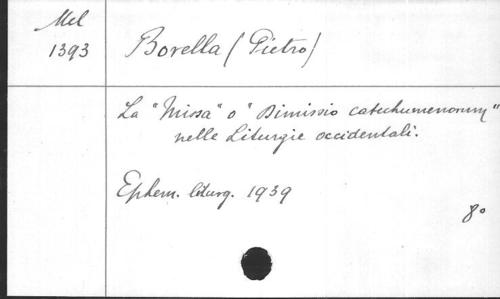 Mel
1393
Borella (Pietro)
La "Missa" o "Dimissio catechumenorum"
nelle Liturgie occidentali.
Ephem. liturg. 1939
8°